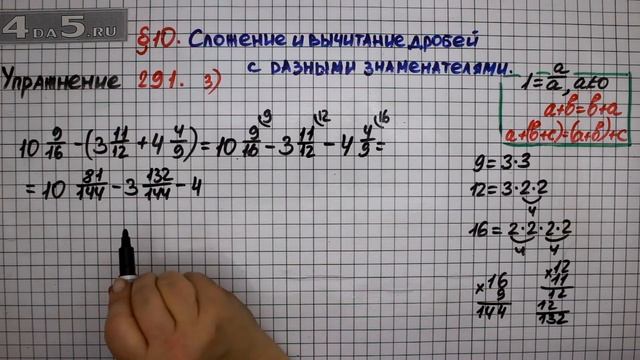 4 DA 5.RU
§10. Сложение и вычитание дробей
с разными знаменателями.
Упражнение 291. з)
1 = a/a, a≠0
a+b=b+a
a+(b+c)=(a+b)+c
10 9/16 - (3 11/12 + 4 4/9) = 10 9/16 - 3 11/12 - 4 4/9 =
9 12 16
= 10 81/144 - 3 132/144 - 4
9 = 3·3
12 = 3·2·2
4
16 = 2·2·2·2
4 4
×16
9
144
×12
11
12
12
132